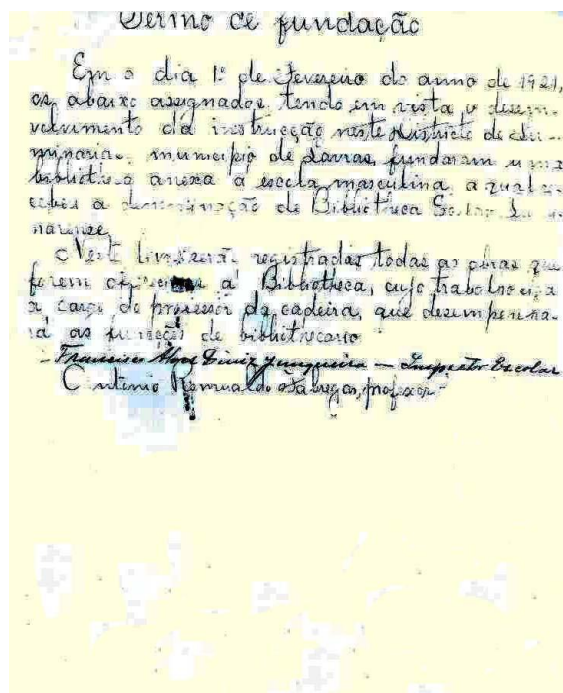 Termo de fundação
Em o dia 1º de Fevereiro do anno de 1921,
os abaixo assignados, tendo em vista o desen-
volvimento da instrucção neste districto de Lu-
minarias, municipio de Lavras, fundaram uma
bibliotheca anexa á escola masculina, a qual re-
cebeu a denominação de Bibliotheca Escolar Lu
narense.
Neste livro serão registradas todas as obras que
forem á Bibliotheca, cujo trabalho
a cargo do professor da cadeira, que desempenha-
rá as funcções de bibliothecario
Francisco Alves Diniz Junqueira — Inspector Escolar
Antonio Romualdo Fabregas, professor